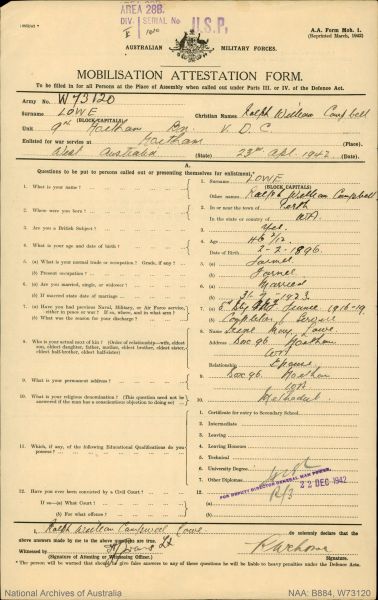 AREA 28B.
DIV. SERIAL No
U.S.P.
A.A. Form Mob. 1.
(Reprinted March, 1942)
AUSTRALIAN MILITARY FORCES.
MOBILISATION ATTESTATION FORM.
To be filled in for all Persons at the Place of Assembly when called out under Parts III. or IV. of the Defence Act.
Army No. W73120
Surname LOWE Christian Names Ralph William Campbell
(BLOCK CAPITALS)
Unit 9th Northam Bn V. D. C.
Enlisted for war service at Northam (Place).
West Australia (State) 23rd Apl. 1942 (Date).
A.
Questions to be put to persons called out or presenting themselves for enlistment.
1. What is your name?
1. Surname LOWE
(BLOCK CAPITALS)
Other names Ralph William Campbell
2. Where were you born?
2. In or near the town of Perth
In the state or country of WA
3. Are you a British Subject?
3. Yes
4. What is your age and date of birth?
4. Age 46 2/12
Date of Birth 2-2-1896
5. (a) What is your normal trade or occupation? Grade, if any?
5. (a) Farmer
(b) Present occupation?
(b) Farmer
6. (a) Are you married, single, or widower?
6. (a) Married
(b) If married state date of marriage.
1923
7. (a) Have you had previous Naval, Military, or Air Force service, either in peace or war? If so, where, and in what arm?
France 1916-19
(b) What was the reason for discharge?
(b) Completion Service
8. Who is your actual next of kin? (Order of relationship—wife, eldest son, eldest daughter, father, mother, eldest brother, eldest sister, eldest half-brother, eldest half-sister)
8. Name May Lowe
Address Box 96. Northam
WA
Relationship Spouse
9. What is your permanent address?
9. Box 96. Northam
WA
10. What is your religious denomination? (This question need not be answered if the man has a conscientious objection to doing so)
10. Methodist
11. Which, if any, of the following Educational Qualifications do you possess?
1. Certificate for entry to Secondary School
2. Intermediate
3. Leaving
4. Leaving Honours
5. Technical
6. University Degree
7. Other Diplomas
FOR DEPUTY DIRECTOR GENERAL MAN POWER
22 DEC 1942
12. Have you ever been convicted by a Civil Court?
12.
If so—(a) What Court?
(a)
(b) For what offence?
(b)
I, Ralph William Campbell Lowe do solemnly declare that the above answers made by me to the above questions are true.
Witnessed by
(Signature of Attesting or Witnessing Officer.) (Signature)
* The person will be warned that should he give false answers to any of these questions he will be liable to heavy penalties under the Defence Act.
National Archives of Australia
NAA: B884, W73120